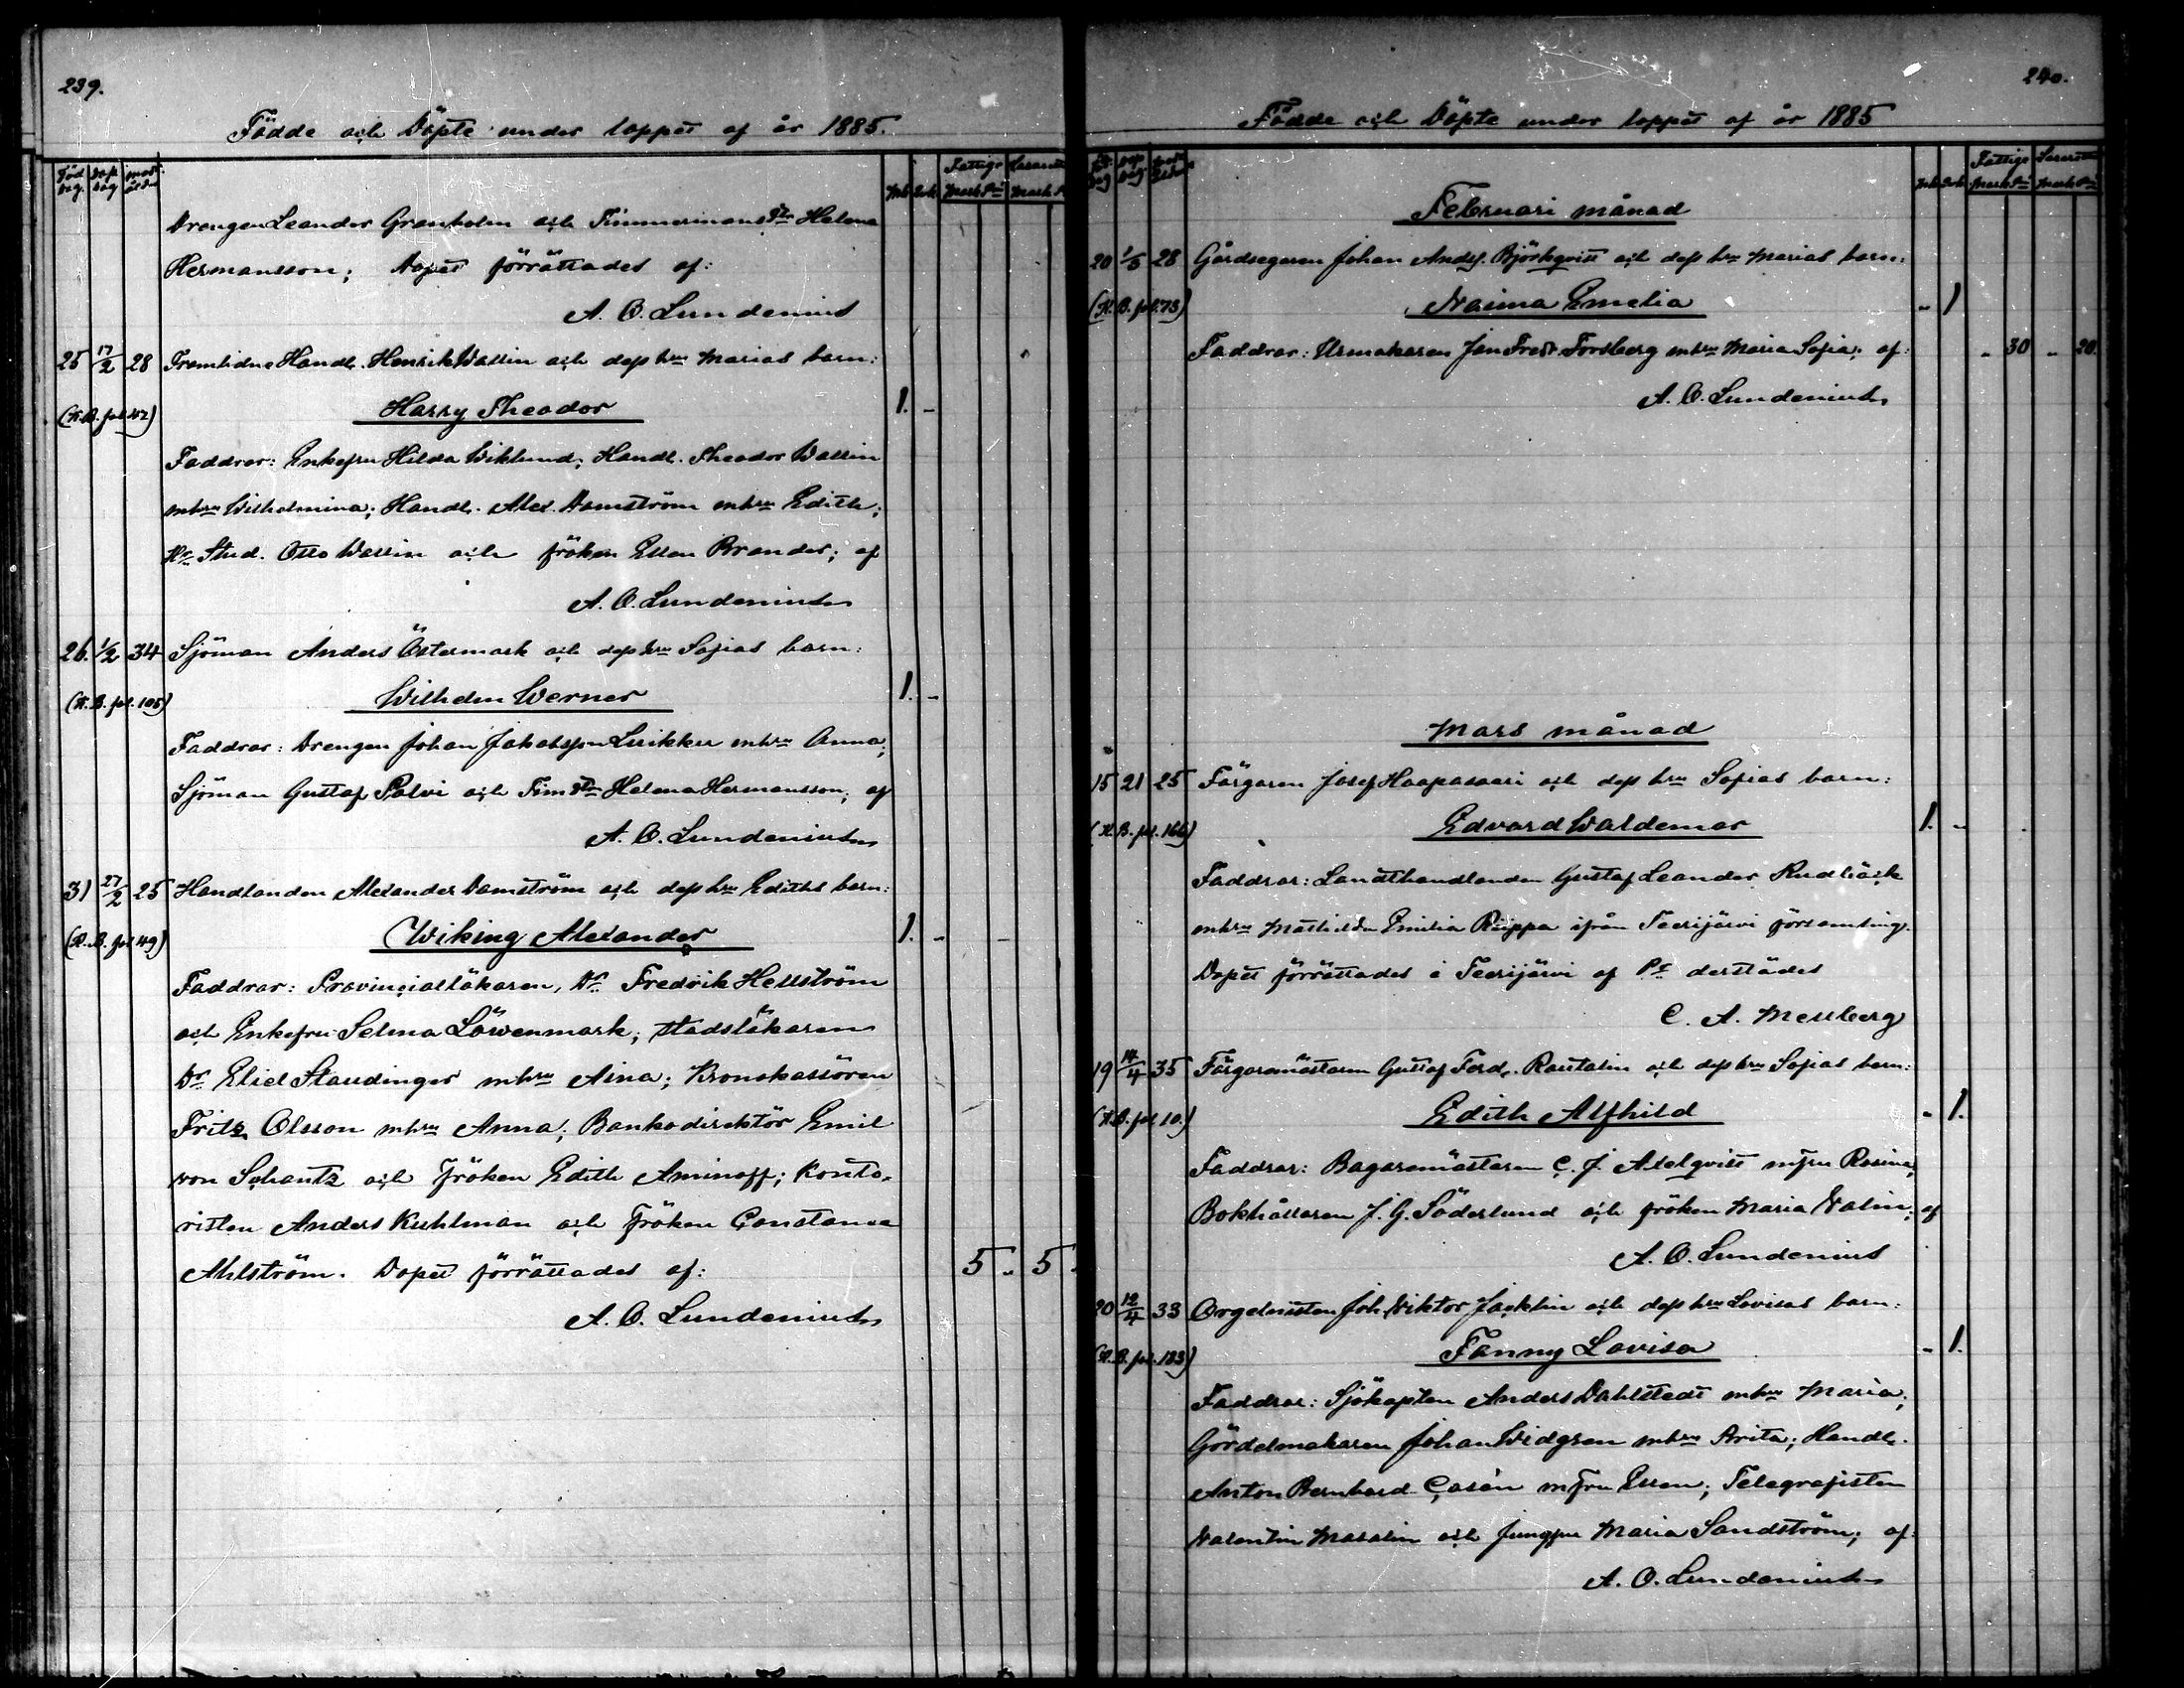 239.
Födde och Döpte under loppet af år 1885.
Föd. dag. Dop dag mod. ålder Mk Qvk Fattige Mark Pi Lasarett Mark P
Drengen Leander Granholm och Timmermans d:tr Helena
Hermansson; Dopet förrättades af:
A. O. Lundenius
25 17/2 28 Framlidne Handl. Henrik Wallin och dess hru Marias barn:
(K.B. fol. 42) Harry Theodor 1. -
Faddrar: Enkefru Hilda Wiklund; Handl. Theodor Wallin
mhru Wilhelmina; Handl. Alex. Damström mhru Edith;
Hr Stud. Otto Wallin och fröken Ellen Brander; af
A. O. Lundenius
26. 1/2 34 Sjöman Anders Östermark och dess hru Sofias barn:
(K.B. fol. 105) Wilhelm Werner 1. -
Faddrar: Drengen Johan Jakobsson mhru Anna;
Sjöman Gustaf Palvi och Tim d:tr Helena Hermansson; af
A. O. Lundenius
31 27/2 25 Handlanden Alexander Damström och dess hru Ediths barn:
(K.B. fol 49) Wiking Alexander 1. - -
Faddrar: Provincialläkaren, Dr Fredrik Hellström
och Enkefru Selma Löwenmark; stadsläkaren
Dr Eliel Standinger mhru Aina; Kronokassören
Fritz Olsson mhru Anna; Bankodirektör Emil
von Schantz och Fröken Edith Aminoff; Konto-
risten Anders Kuhlman och Fröken Constance
Ahlström. Dopet förrättades af: 5 " 5
A. O. Lundenius
240.
Födde och Döpte under loppet af år 1885
Föd. Dag Dop Dag mod. ålder Mk Qvk Fattige Mark Pi Lasarett Mark Pi
Februari månad
20 1/5 28 Gårdsegaren Johan Andrs. Björkqvist och dess hru Marias barn:
(K.B. fol. 73) Naima Emelia - 1
Faddrar: Urmakaren Jan Fredr Forsberg mhru Maria Sofia; af: - 30 - 20
A. O. Lundenius
Mars månad
15 21 25 Färgaren Josef Haapasaari och dess hru Sofias barn:
(K.B. fol. 166) Edvard Waldemar 1. -
Faddrar: Landthandlanden Gustaf Leander Rudbäck
mhru Mathilda Emilia Riippa ifrån Teerijärvi församling.
Dopet förrättades i Teerijärvi af Pr derstädes
C. A. Mellberg
19 14/4 35 Färgaremästaren Gustaf Ferd. Rautalin och dess hru Sofias barn:
(K.B. fol 10.) Edith Alfhild - 1.
Faddrar: Bagaremästaren C. J. Adelqvist mfru Rosina;
Bokhållaren J. G. Söderlund och fröken Maria Walin; af
A. O. Lundenius
20 12/4 33 Orgelnisten Joh. Viktor Jacklin och dess hru Lovisas barn:
(K.B. fol. 183) Fanny Lovisa - 1.
Faddrar: Sjökapten Anders Dahlstedt mhru Maria;
Gördelmakaren Johan Widgren mhru Brita; Handl.
Anton Bernhard Casén mfru Ellen; Telegrafisten
Valentin Masalin och Jungfru Maria Sandström; af:
A. O. Lundenius